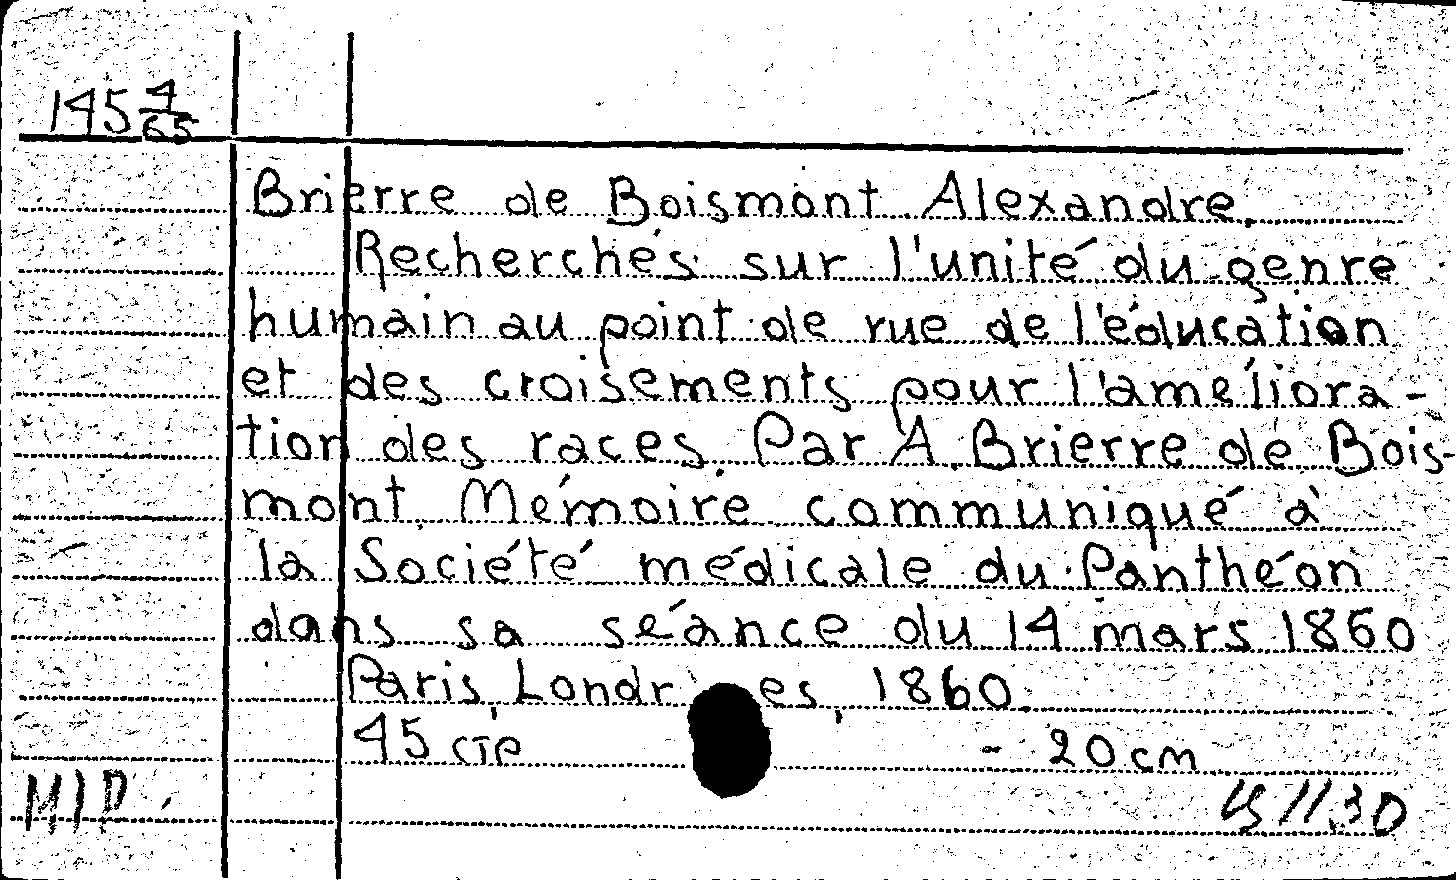 145 4/65
Brierre de Boismont Alexandre.
Recherches sur l'unité du genre
humain au point de rue de l'éducation
et des croisements pour l'améliora-
tion des races. Par A. Brierre de Bois-
mont. Mémoire communiqué à
la Société médicale du Panthéon
dans sa séance du 14 mars 1860
Paris, Londres, 1860.
45 стр - 20 cm